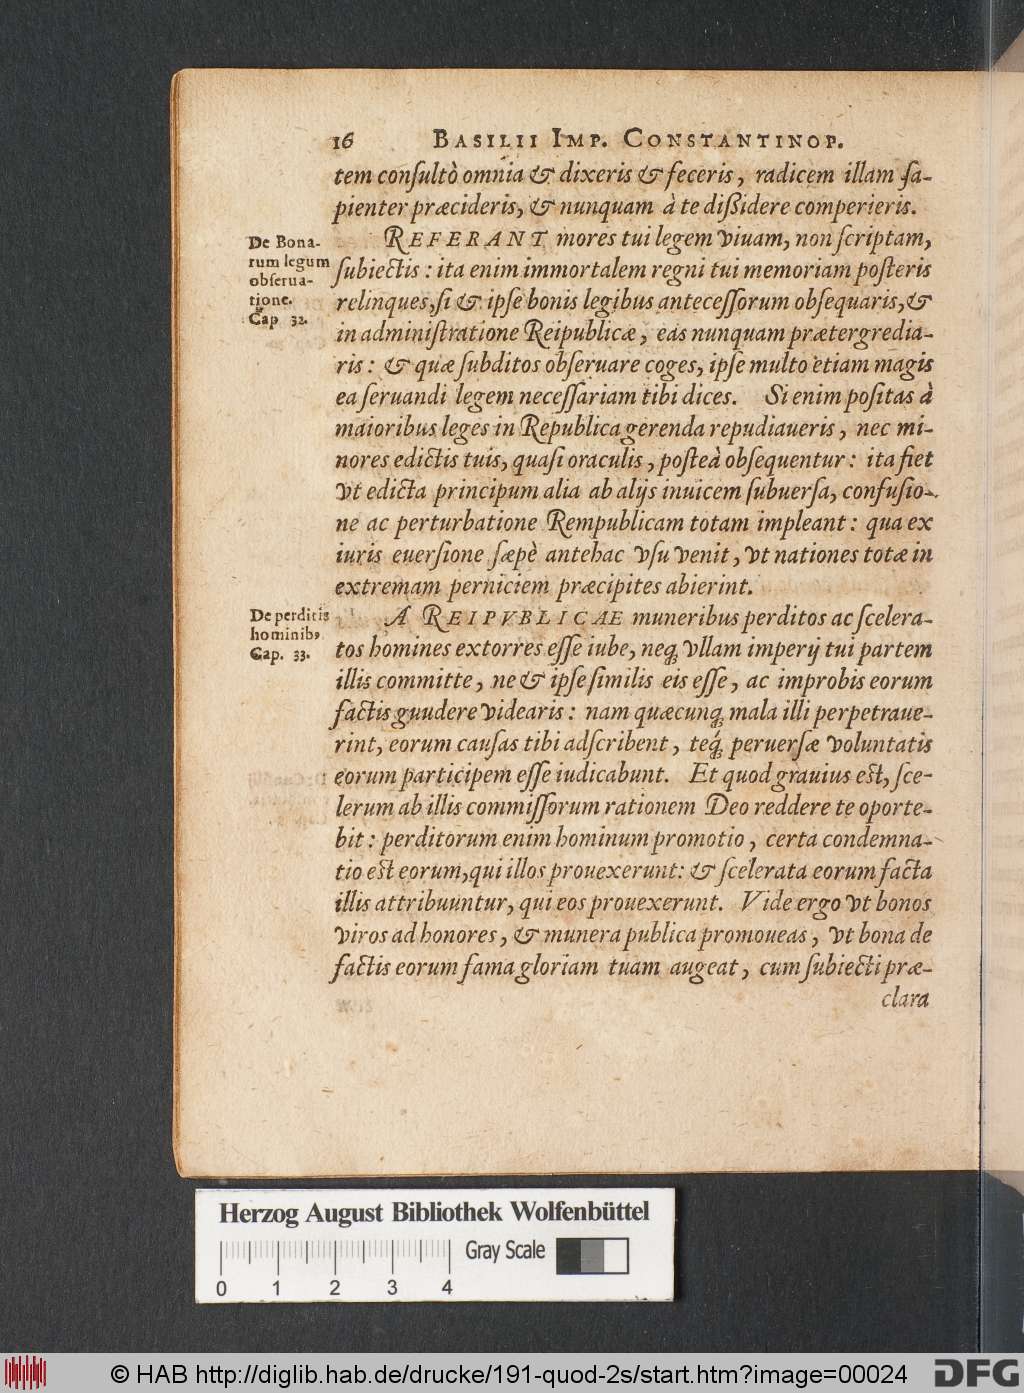 16 BASILII IMP. CONSTANTINOP.
tem conſultò omnia & dixeris & feceris, radicem illam ſa-
pienter præcideris, & nunquam à te dißidere comperieris.
De Bona-
rum legum
obſerua-
tione.
Cap 32.
REFERANT mores tui legem viuam, non ſcriptam,
ſubiectis : ita enim immortalem regni tui memoriam poſteris
relinques, ſi & ipſe bonis legibus anteceſſorum obſequaris, &
in adminiſtratione Reipublicæ, eas nunquam prætergredia-
ris : & quæ ſubditos obſeruare coges, ipſe multo etiam magis
ea ſeruandi legem neceſſariam tibi dices. Si enim poſitas à
maioribus leges in Republica gerenda repudiaueris, nec mi-
nores edictis tuis, quaſi oraculis, poſteà obſequentur : ita fiet
vt edicta principum alia ab alijs inuicem ſubuerſa, confuſio-
ne ac perturbatione Rempublicam totam impleant : qua ex
iuris euerſione ſæpè antehac vſu venit, vt nationes totæ in
extremam perniciem præcipites abierint.
De perditis
hominibꝰ
Cap. 33.
A REIPVBLICAE muneribus perditos ac ſcelera-
tos homines extorres eſſe iube, neq; vllam imperij tui partem
illis committe, ne & ipſe ſimilis eis eſſe, ac improbis eorum
factis guudere videaris : nam quæcunq; mala illi perpetraue-
rint, eorum cauſas tibi adſcribent, teq́; peruerſæ voluntatis
eorum participem eſſe iudicabunt. Et quod grauius eſt, ſce-
lerum ab illis commiſſorum rationem Deo reddere te oporte-
bit : perditorum enim hominum promotio, certa condemna-
tio eſt eorum, qui illos prouexerunt: & ſcelerata eorum facta
illis attribuuntur, qui eos prouexerunt. Vide ergo vt bonos
viros ad honores, & munera publica promoueas, vt bona de
factis eorum fama gloriam tuam augeat, cum ſubiecti præ-
clara
Herzog August Bibliothek Wolfenbüttel
Gray Scale
0 1 2 3 4
© HAB http://diglib.hab.de/drucke/191-quod-2s/start.htm?image=00024
DFG